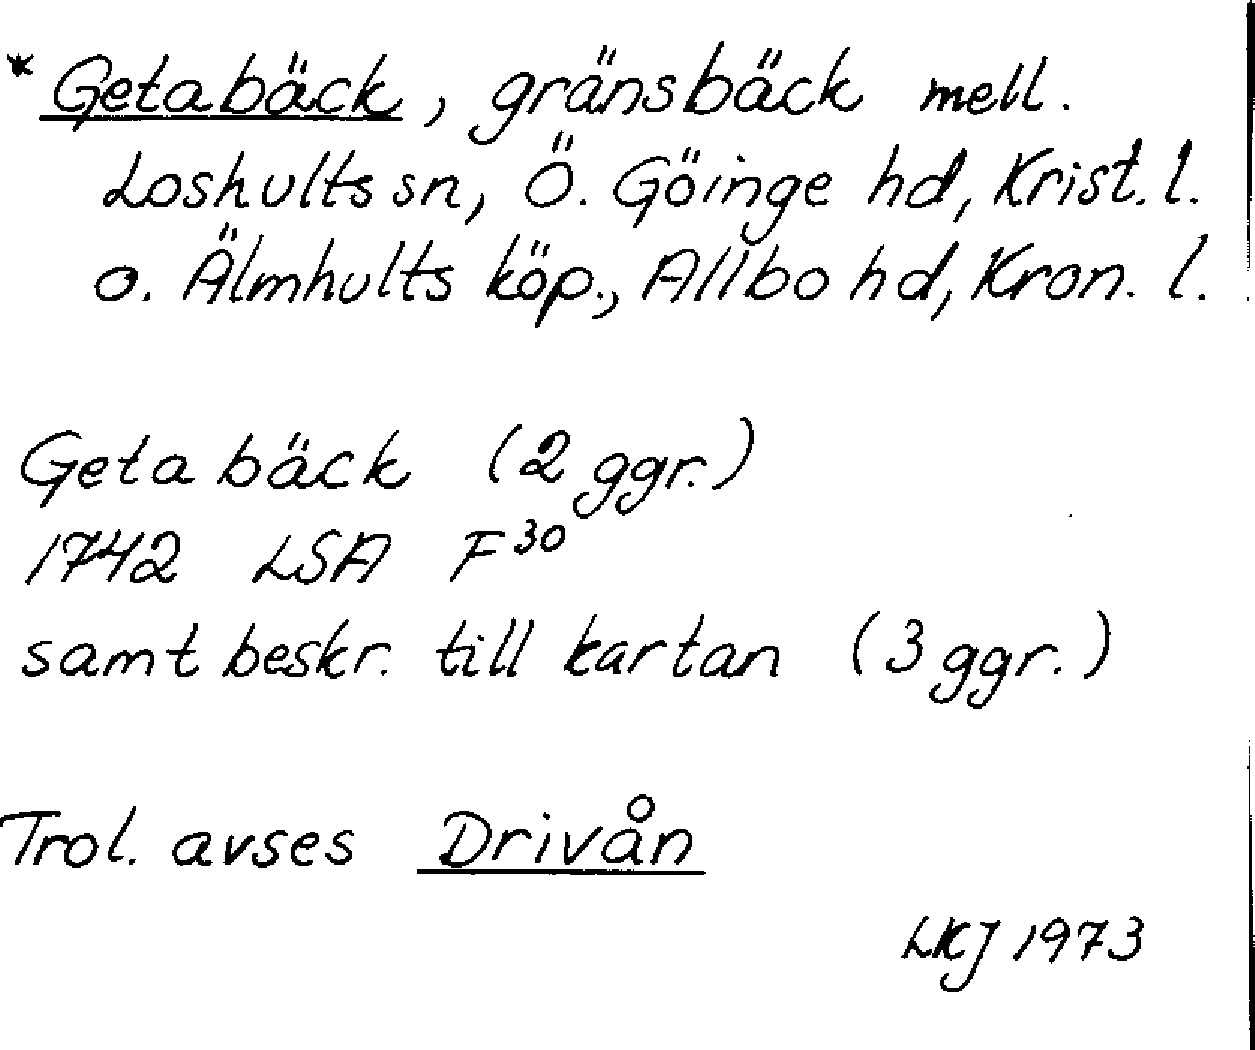 * Getabäck, gränsbäck mell.
Loshults sn, Ö. Göinge hd, Krist. l.
o. Älmhults köp., Allbo hd, Kron. l.
Geta bäck (2 ggr.)
1742 LSA F30
samt beskr. till kartan (3 ggr.)
Trol. avses Drivån
LKJ 1973